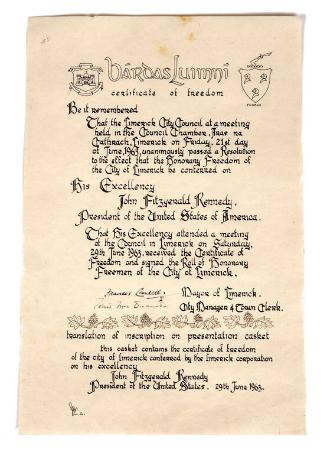 Bárdas Luimní
certificate of freedom
Be it remembered
That the Limerick City Council at a meeting
held in the Council Chamber, Áras na
Cathrach, Limerick on Friday, 21st day
of June, 1963, unanimously passed a Resolution
to the effect that the Honorary Freedom of
the City of Limerick be conferred on
His Excellency
John Fitzgerald Kennedy,
President of the United States of America.
That His Excellency attended a meeting
of the Council in Limerick on Saturday,
29th June 1963, received the Certificate of
Freedom and signed the Roll of Honorary
Freemen of the City of Limerick.
Frances Condell. Mayor of Limerick.
City Manager & Town Clerk.
translation of inscription on presentation casket
this casket contains the certificate of freedom
of the city of limerick conferred by the limerick corporation
on his excellency
John Fitzgerald Kennedy
President of the United States. 29th June 1963.